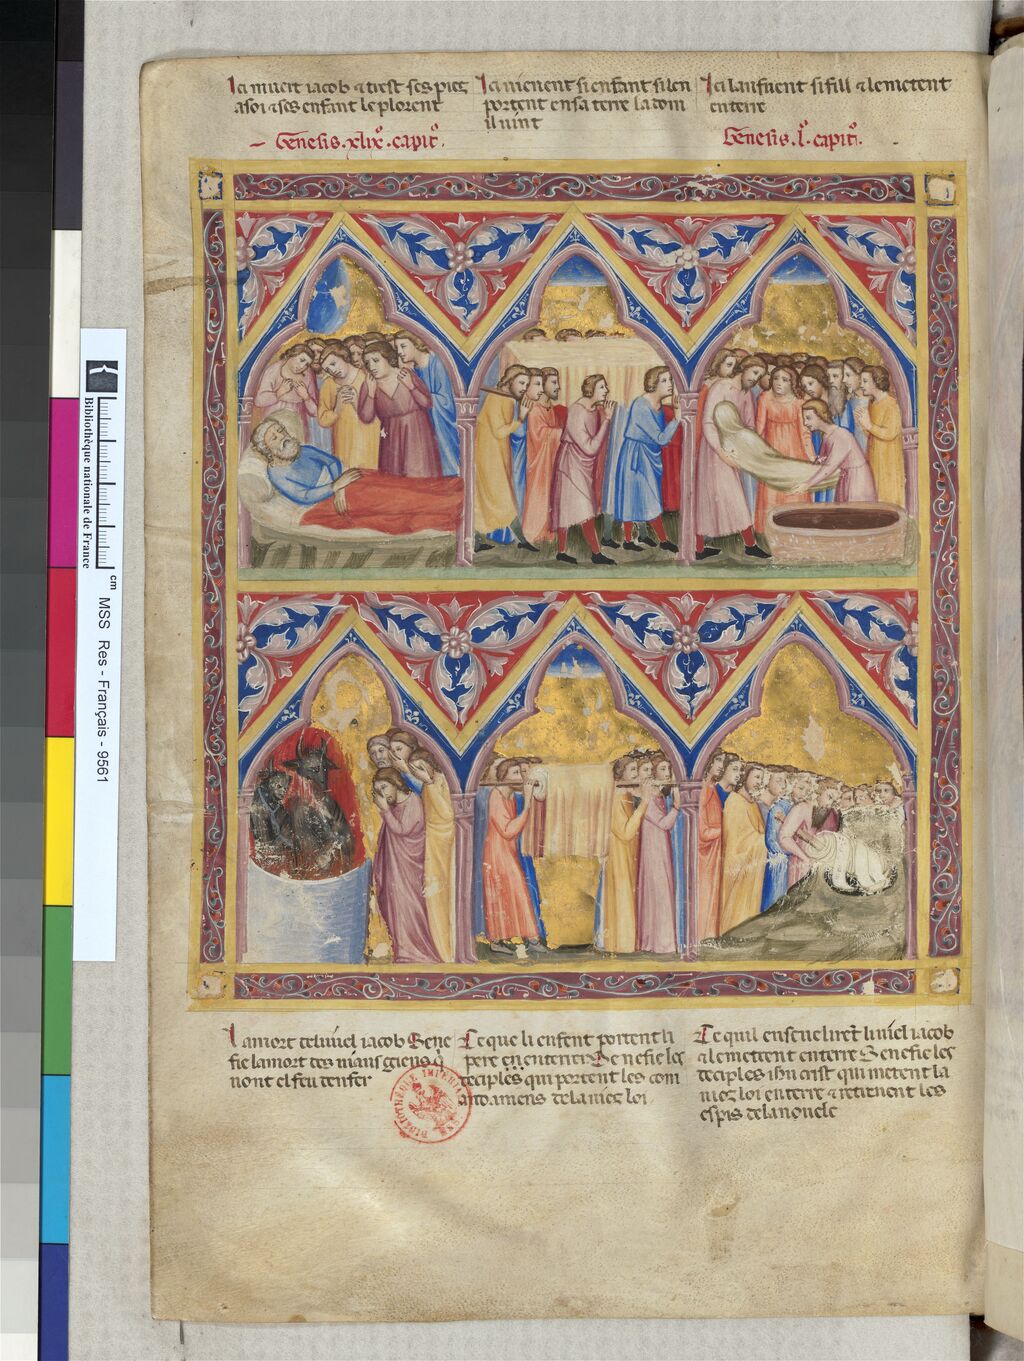 Ici muert iacob & trest ses piez
a soi & ses enfant le plorent
Genesis . xlix° . capit° .
Ici vienent si enfant si len
portent en sa terre la dom
il uint
Ici lanfuent si fill & le metent
en terre
Genesis . l° . capit° .
La mort del uiel iacob Sene
fie la mort des maus giens q
uont el feu denfer
Ce que li enfent portent li
pere en enterrer Senefie les
deciples qui portent les com
andamens de la uiez loi
Ce quil enseuelirent li uiel iacob
& le mettent en terre Senefie les
deciples ihu crist qui metent la
uiez loi en terre & retienent les
espis de la nouele
BIBLIOTHÈQUE IMPÉRIALE
MSS
Bibliothèque nationale de France
cm
MSS Res - Français - 9561